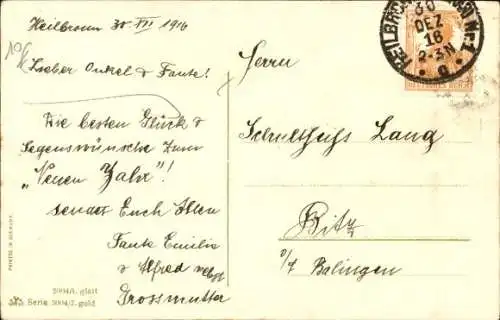 Heilbronn 30. XII 1916
Lieber Onkel & Tante!
Die besten Glück &
Segenswünsche zum
„Neuen Jahr"!
sendet Euch Allen
Tante Emilie
& Alfred nebst
Grossmutter
Herrn
Schultheiß Lang
Bitz
o/A Balingen
30
DEZ
16
2-3N
DEUTSCHES REICH
PRINTED IN GERMANY
glatt
Serie gold